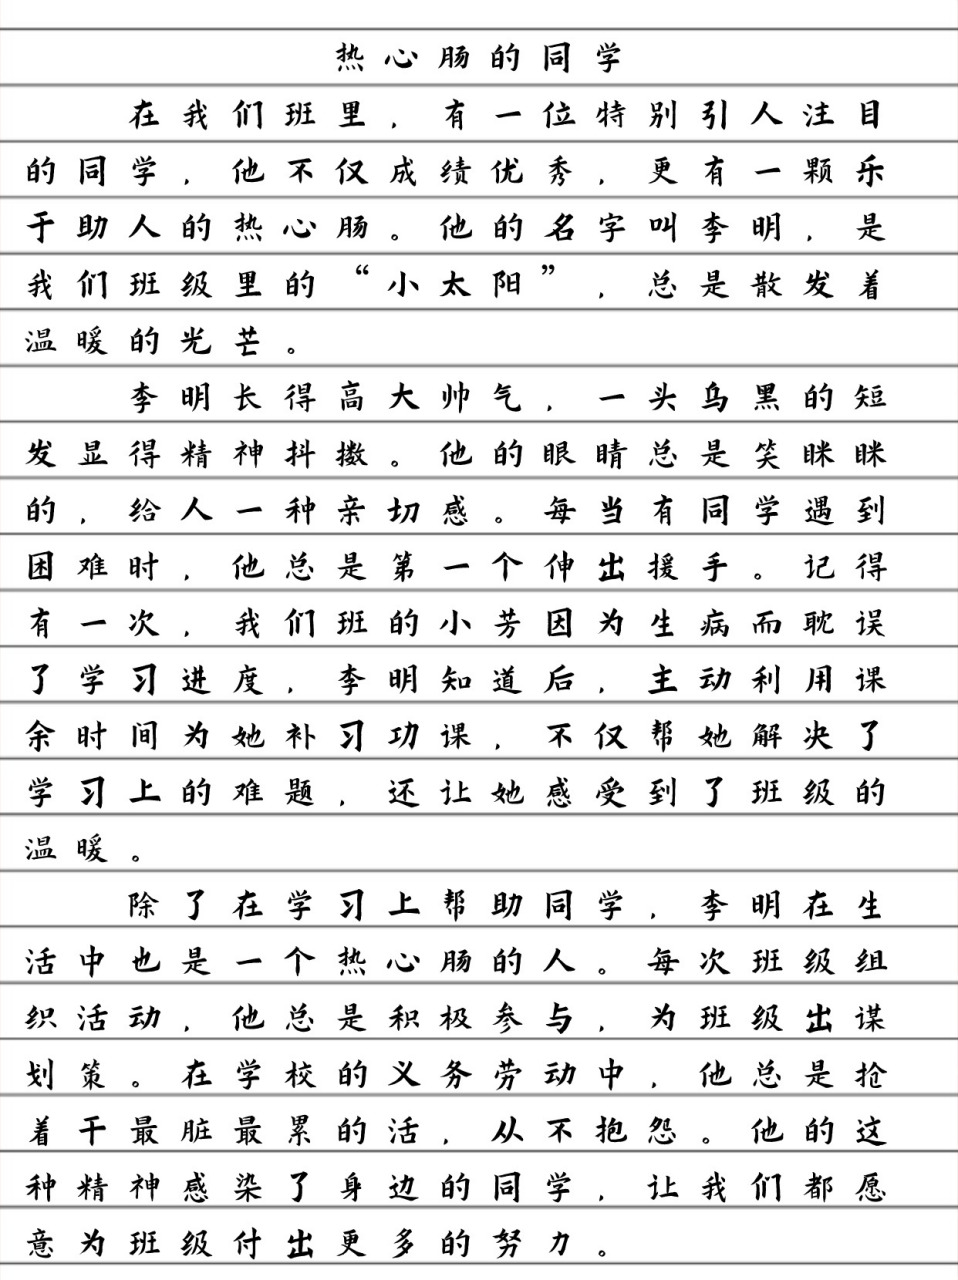 热心肠的同学
在我们班里，有一位特别引人注目
的同学，他不仅成绩优秀，更有一颗乐
于助人的热心肠。他的名字叫李明，是
我们班级里的“小太阳”，总是散发着
温暖的光芒。
李明长得高大帅气，一头乌黑的短
发显得精神抖擞。他的眼睛总是笑眯眯
的，给人一种亲切感。每当有同学遇到
困难时，他总是第一个伸出援手。记得
有一次，我们班的小芳因为生病而耽误
了学习进度，李明知道后，主动利用课
余时间为她补习功课，不仅帮她解决了
学习上的难题，还让她感受到了班级的
温暖。
除了在学习上帮助同学，李明在生
活中也是一个热心肠的人。每次班级组
织活动，他总是积极参与，为班级出谋
划策。在学校的义务劳动中，他总是抢
着干最脏最累的活，从不抱怨。他的这
种精神感染了身边的同学，让我们都愿
意为班级付出更多的努力。